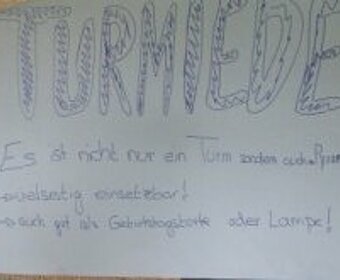 TURMIEDE
Es ist nicht nur ein Turm sondern auch Pyram
→ vielseitig einsetzbar!
→ auch gut als Geburtstagskarte oder Lampe!